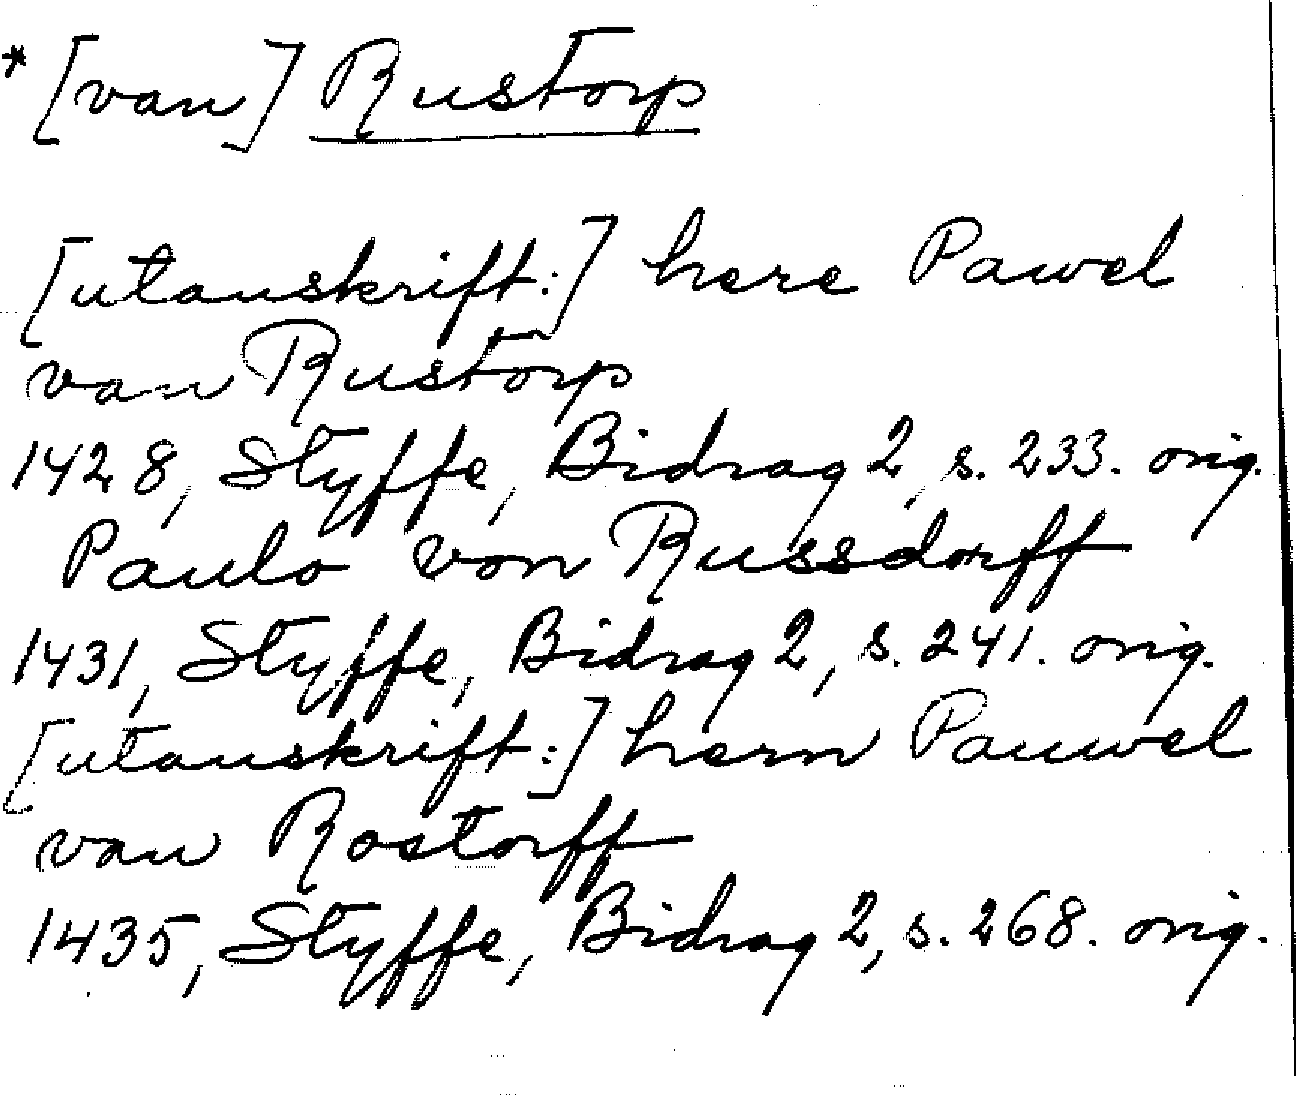 *[van] Rustorp
[utanskrift:] here Pawel
van Rustorp
1428, Styffe, Bidrag 2, s. 233. orig.
Paulo von Russdorff
1431, Styffe, Bidrag 2, s. 241. orig.
[utanskrift:] hern Pauwel
van Rostorff
1435, Styffe, Bidrag 2, s. 268. orig.